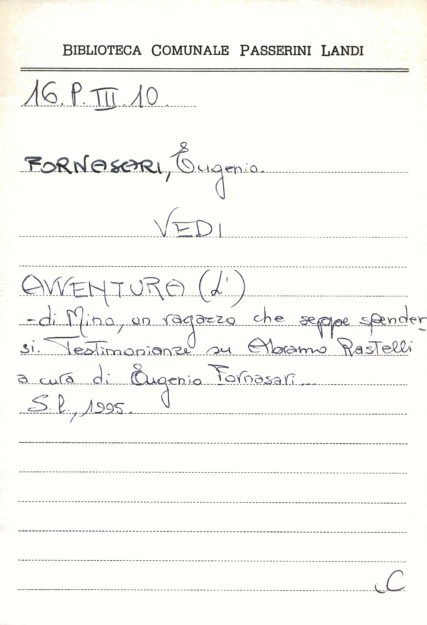 BIBLIOTECA COMUNALE PASSERINI LANDI
16. P. III. 10.
FORNASARI, Eugenio.
VEDI
AVVENTURA (L')
- di Mino, un ragazzo che seppe spender
si. Testimonianze su Abramo Rastelli
a cura di Eugenio Fornasari...
S. l., 1995.
C